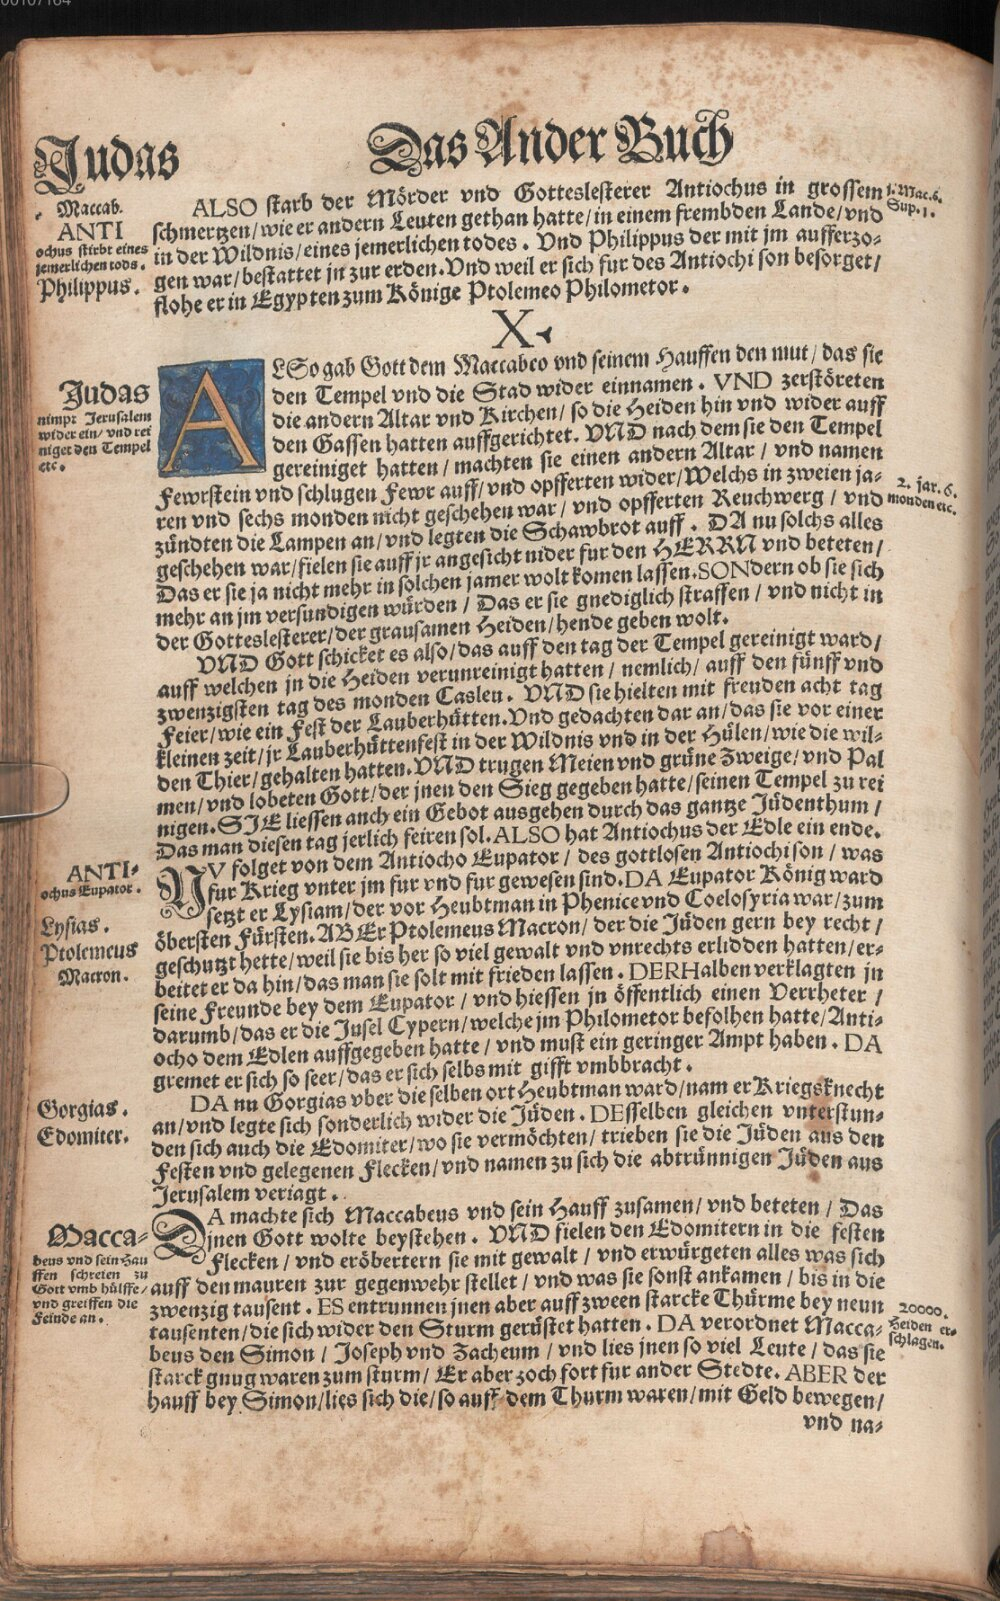 00107164
Das Ander Buch
Judas
Maccab.
ANTI
ochus stirbt eines
jemerlichen tods.
Philippus.
1. Mac. 6.
Sup. 1.
ALSO starb der Mörder vnd Gotteslesterer Antiochus in grossem
schmertzen/wie er andern Leuten gethan hatte/in einem frembden Lande/vnd
in der Wildnis/eines jemerlichen todes. Vnd Philippus der mit jm aufferzo-
gen war/bestattet jn zur erden. Vnd weil er sich fur des Antiochi son besorget/
flohe er in Egypten zum Könige Ptolemeo Philometor.
X.
Judas
nimpt Jerusalem
wider ein/ vnd rei
niget den Tempel
etc.
ALSo gab Gott dem Maccabeo vnd seinem Hauffen den mut/das sie
den Tempel vnd die Stad wider einnamen. VND zerstöreten
die andern Altar vnd Kirchen/so die Heiden hin vnd wider auff
den Gassen hatten auffgerichtet. VND nach dem sie den Tempel
gereiniget hatten/machten sie einen andern Altar/vnd namen
Fewrstein vnd schlugen Fewr auff/vnd opfferten wider/Welchs in zweien ja-
ren vnd sechs monden nicht geschehen war/vnd opfferten Reuchwerg/vnd
zündten die Lampen an/vnd legten die Schawbrot auff. DA nu solchs alles
geschehen war/fielen sie auff jr angesicht nider fur den HERRN vnd beteten/
Das er sie ja nicht mehr in solchen jamer wolt komen lassen. SONdern ob sie sich
mehr an jm versundigen würden/Das er sie gnediglich straffen/vnd nicht in
der Gotteslesterer/der grausamen Heiden/hende geben wolt.
2. jar. 6.
monden etc.
VND Gott schicket es also/das auff den tag der Tempel gereinigt ward/
auff welchen jn die Heiden verunreinigt hatten/nemlich/auff den fünff vnd
zwenzigsten tag des monden Casleu. VND sie hielten mit freuden acht tag
Feier/wie ein Fest der Lauberhütten. Vnd gedachten dar an/das sie vor einer
kleinen zeit/jr Lauberhüttenfest in der Wildnis vnd in der Hülen/wie die wil-
den Thier/gehalten hatten. VND trugen Meien vnd grüne Zweige/vnd Pal
men/vnd lobeten Gott/der jnen den Sieg gegeben hatte/seinen Tempel zu rei
nigen. SIE liessen auch ein Gebot ausgehen durch das gantze Jüdenthum/
Das man diesen tag jerlich feiren sol. ALSO hat Antiochus der Edle ein ende.
ANTI-
ochus Eupator.
Lysias.
Ptolemeus
Macron.
NV folget von dem Antiocho Eupator/des gottlosen Antiochi son/was
fur Krieg vnter jm fur vnd fur gewesen sind. DA Eupator König ward
setzt er Lysiam/der vor Heubtman in Phenice vnd Coelosyria war/zum
öbersten Fürsten. ABEr Ptolemeus Macron/der die Jüden gern bey recht/
geschutzt hette/weil sie bis her so viel gewalt vnd vnrechts erlidden hatten/er-
beitet er da hin/das man sie solt mit frieden lassen. DERHalben verklagten jn
seine Freunde bey dem Eupator/vnd hiessen jn öffentlich einen Verrheter/
darumb/das er die Jnsel Cypern/welche jm Philometor befolhen hatte/Anti-
ocho dem Edlen auffgegeben hatte/vnd must ein geringer Ampt haben. DA
gremet er sich so seer/das er sich selbs mit gifft vmbbracht.
Gorgias.
Edomiter.
DA nu Gorgias vber die selben ort Heubtman ward/nam er Kriegsknecht
an/vnd legte sich sonderlich wider die Jüden. DEsselben gleichen vnterstun-
den sich auch die Edomiter/wo sie vermöchten/trieben sie die Jüden aus den
Festen vnd gelegenen Flecken/vnd namen zu sich die abtrünnigen Jüden aus
Jerusalem veriagt.
Macca-
beus vnd sein Hau
ffen schreien zu
Gott vmb hülffe/
vnd greiffen die
Feinde an.
DA machte sich Maccabeus vnd sein Hauff zusamen/vnd beteten/Das
jnen Gott wolte beystehen. VND fielen den Edomitern in die festen
Flecken/vnd eröbertern sie mit gewalt/vnd erwürgeten alles was sich
auff den mauren zur gegenwehr stellet/vnd was sie sonst ankamen/bis in die
zwenzig tausent. ES entrunnen jnen aber auff zween starcke Thürme bey neun
tausenten/die sich wider den Sturm gerüstet hatten. DA verordnet Macca-
beus den Simon/Joseph vnd Zacheum/vnd lies jnen so viel Leute/das sie
starck gnug waren zum sturm/Er aber zoch fort fur ander Stedte. ABER der
hauff bey Simon/lies sich die/so auff dem Thurm waren/mit Geld bewegen/
20000.
Heiden er-
schlagen.
vnd na-